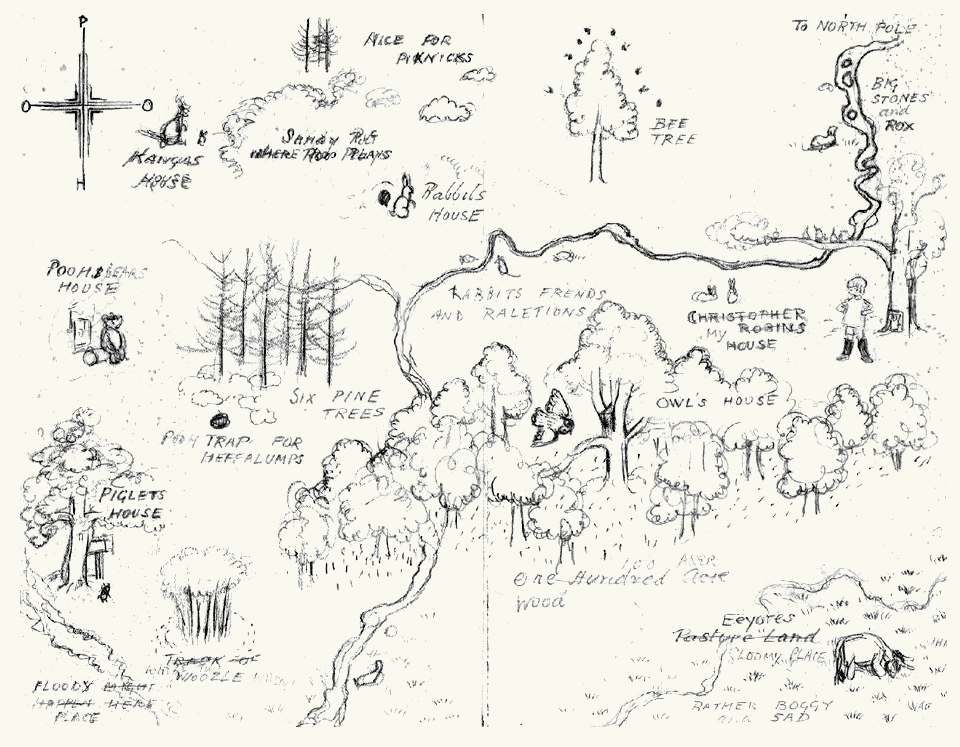 P
H
NICE FOR
PIKNICKS
KANGAS
HOUSE
SANDY PIT
WHERE ROO PLAYS
Rabbits
HOUSE
BEE
TREE
To NORTH POLE
BIG
STONES
and
ROX
POOH BEARS
HOUSE
RABBITS FRENDS
AND RALETIONS
CHRISTOPHER
My ROBINS
HOUSE
SIX PINE
TREES
POOH TRAP FOR
HEFFALUMPS
OWL'S HOUSE
PIGLETS
HOUSE
100 AKER
One Hundred Acre
Wood
Eeyores
Pasture Land
GLOOMY PLACE
WOOZLE
FLOODY MIGHT
HAPPEN HERE
PLACE
RATHER BOGGY
and SAD